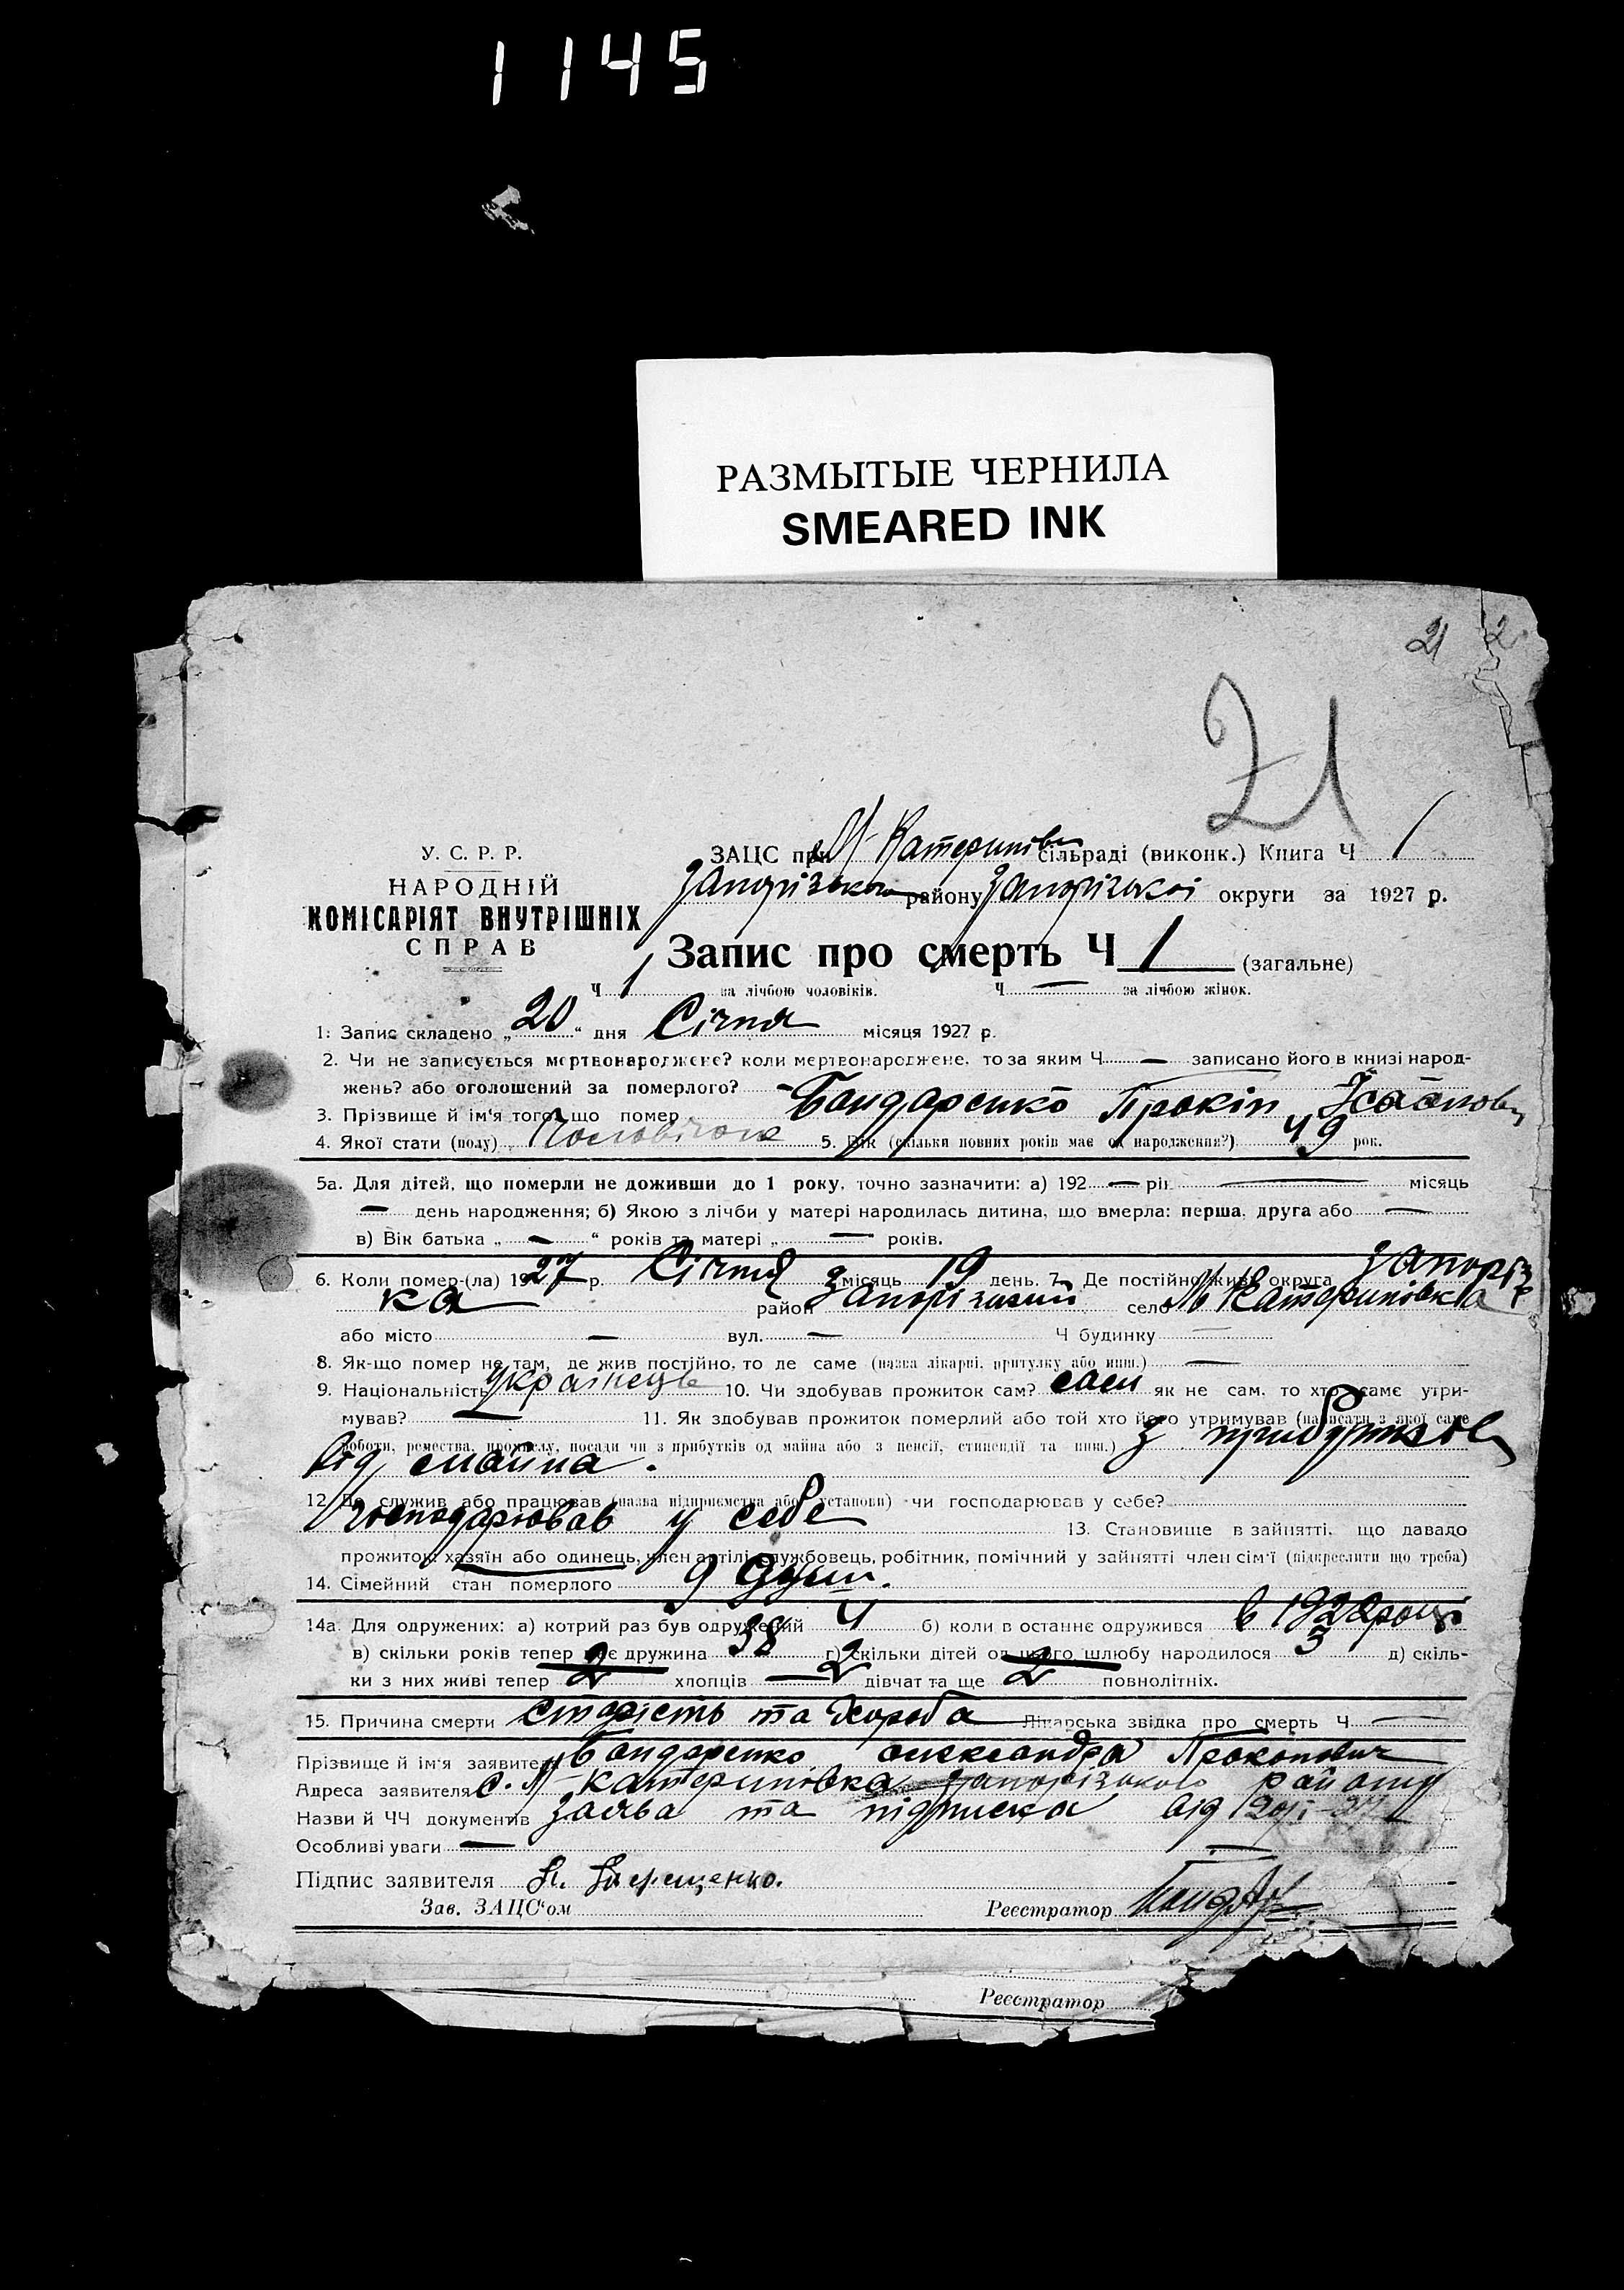 1145
РАЗМЫТЫЕ ЧЕРНИЛА
SMEARED INK
21 2
21
У. С. Р. Р.
НАРОДНІЙ
КОМІСАРІЯТ ВНУТРІШНІХ
СПРАВ
ЗАЦС при М-Катеринівк сільраді (виконк.) Книга Ч 1
Запорізького району Запорізької округи за 1927 р.
Запис про смерть Ч 1 (загальне)
Ч 1 за лічбою чоловіків. Ч — за лічбою жінок.
1: Запис складено „20“ дня Січня місяця 1927 р.
2. Чи не записується мертвонароджене? коли мертвонароджене, то за яким Ч — записано його в книзі народ-
жень? або оголошений за померлого? —
3. Прізвище й ім'я того, що помер Бондаренко Прокіп
4. Якої стати (полу) 5. Вік (скільки повних років має од народження?) 49 рок.
5а. Для дітей, що померли не доживши до 1 року, точно зазначити: а) 192 — рік — місяць
— день народження; б) Якою з лічби у матері народилась дитина, що вмерла: перша, друга або —
в) Вік батька „ — “ років та матері „ — “ років.
6. Коли помер-(ла) 1927 р. Січня місяць 19 день. 7. Де постійно жив? округа Запоріз
ка район Запорізький село М Катеринівка
або місто — вул. — Ч будинку —
8. Як-що помер не там, де жив постійно, то де саме (назва лікарні, притулку або инш.) —
9. Національність Українець 10. Чи здобував прожиток сам? сам як не сам, то хто саме утри-
мував? — 11. Як здобував прожиток померлий або той хто його утримував (написати з якої саме
роботи, ремества, промислу, посади чи з прибутків од майна або з пенсії, стипендії та инш.) з прибутків
від майна.
12. Де служив або працював (назва підприємства або установи) чи господарював у себе?
господарював у себе 13. Становище в зайнятті, що давало
прожиток: хазяїн або одинець, член артілі, службовець, робітник, помічний у зайнятті член сім'ї (підкреслити що треба)
14. Сімейний стан померлого 9 душ.
14а. Для одружених: а) котрий раз був одружений 4 б) коли в останнє одружився в 1922 році
в) скільки років тепер має дружина 38 г) скільки дітей од цього шлюбу народилося 3 д) скіль-
ки з них живі тепер 2 хлопців 2 дівчат та ще 2 повнолітніх.
15. Причина смерти старість та хороба Лікарська звідка про смерть Ч —
Прізвище й ім'я заявителя Бондаренко Олександра Прокопович
Адреса заявителя с. М-Катеринівка Запорізького району
Назви й ЧЧ документів Заява та підписка від 20/I-27
Особливі уваги —
Підпис заявителя
Зав. ЗАЦС'ом Реєстратор
Реєстратор